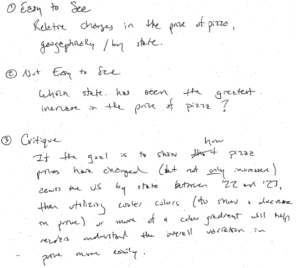 ① Easy to See
Relative changes in the price of pizza,
geographically / by state.
② Not Easy to See
Which state has seen the greatest
increase in the price of pizza?
③ Critique
If the goal is to show how pizza
prices have changed (but not only increases)
across the US by state between '22 and '23,
then utilizing cooler colors (to show a decrease
in price) or more of a color gradient will help
readers understand the overall variation in
price more easily.